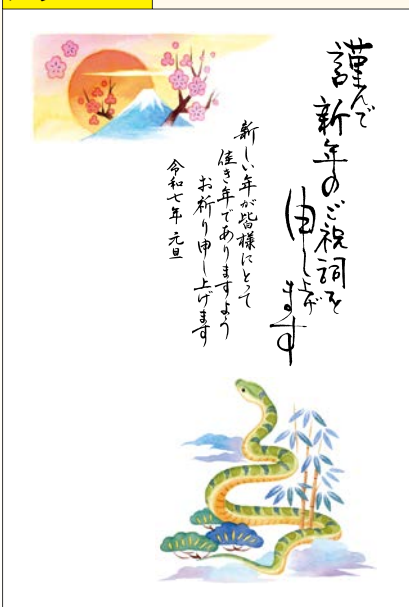 謹んで
新年のご祝詞を
申し上げ
ます
新しい年が皆様にとって
佳き年でありますよう
お祈り申し上げます
令和七年 元旦